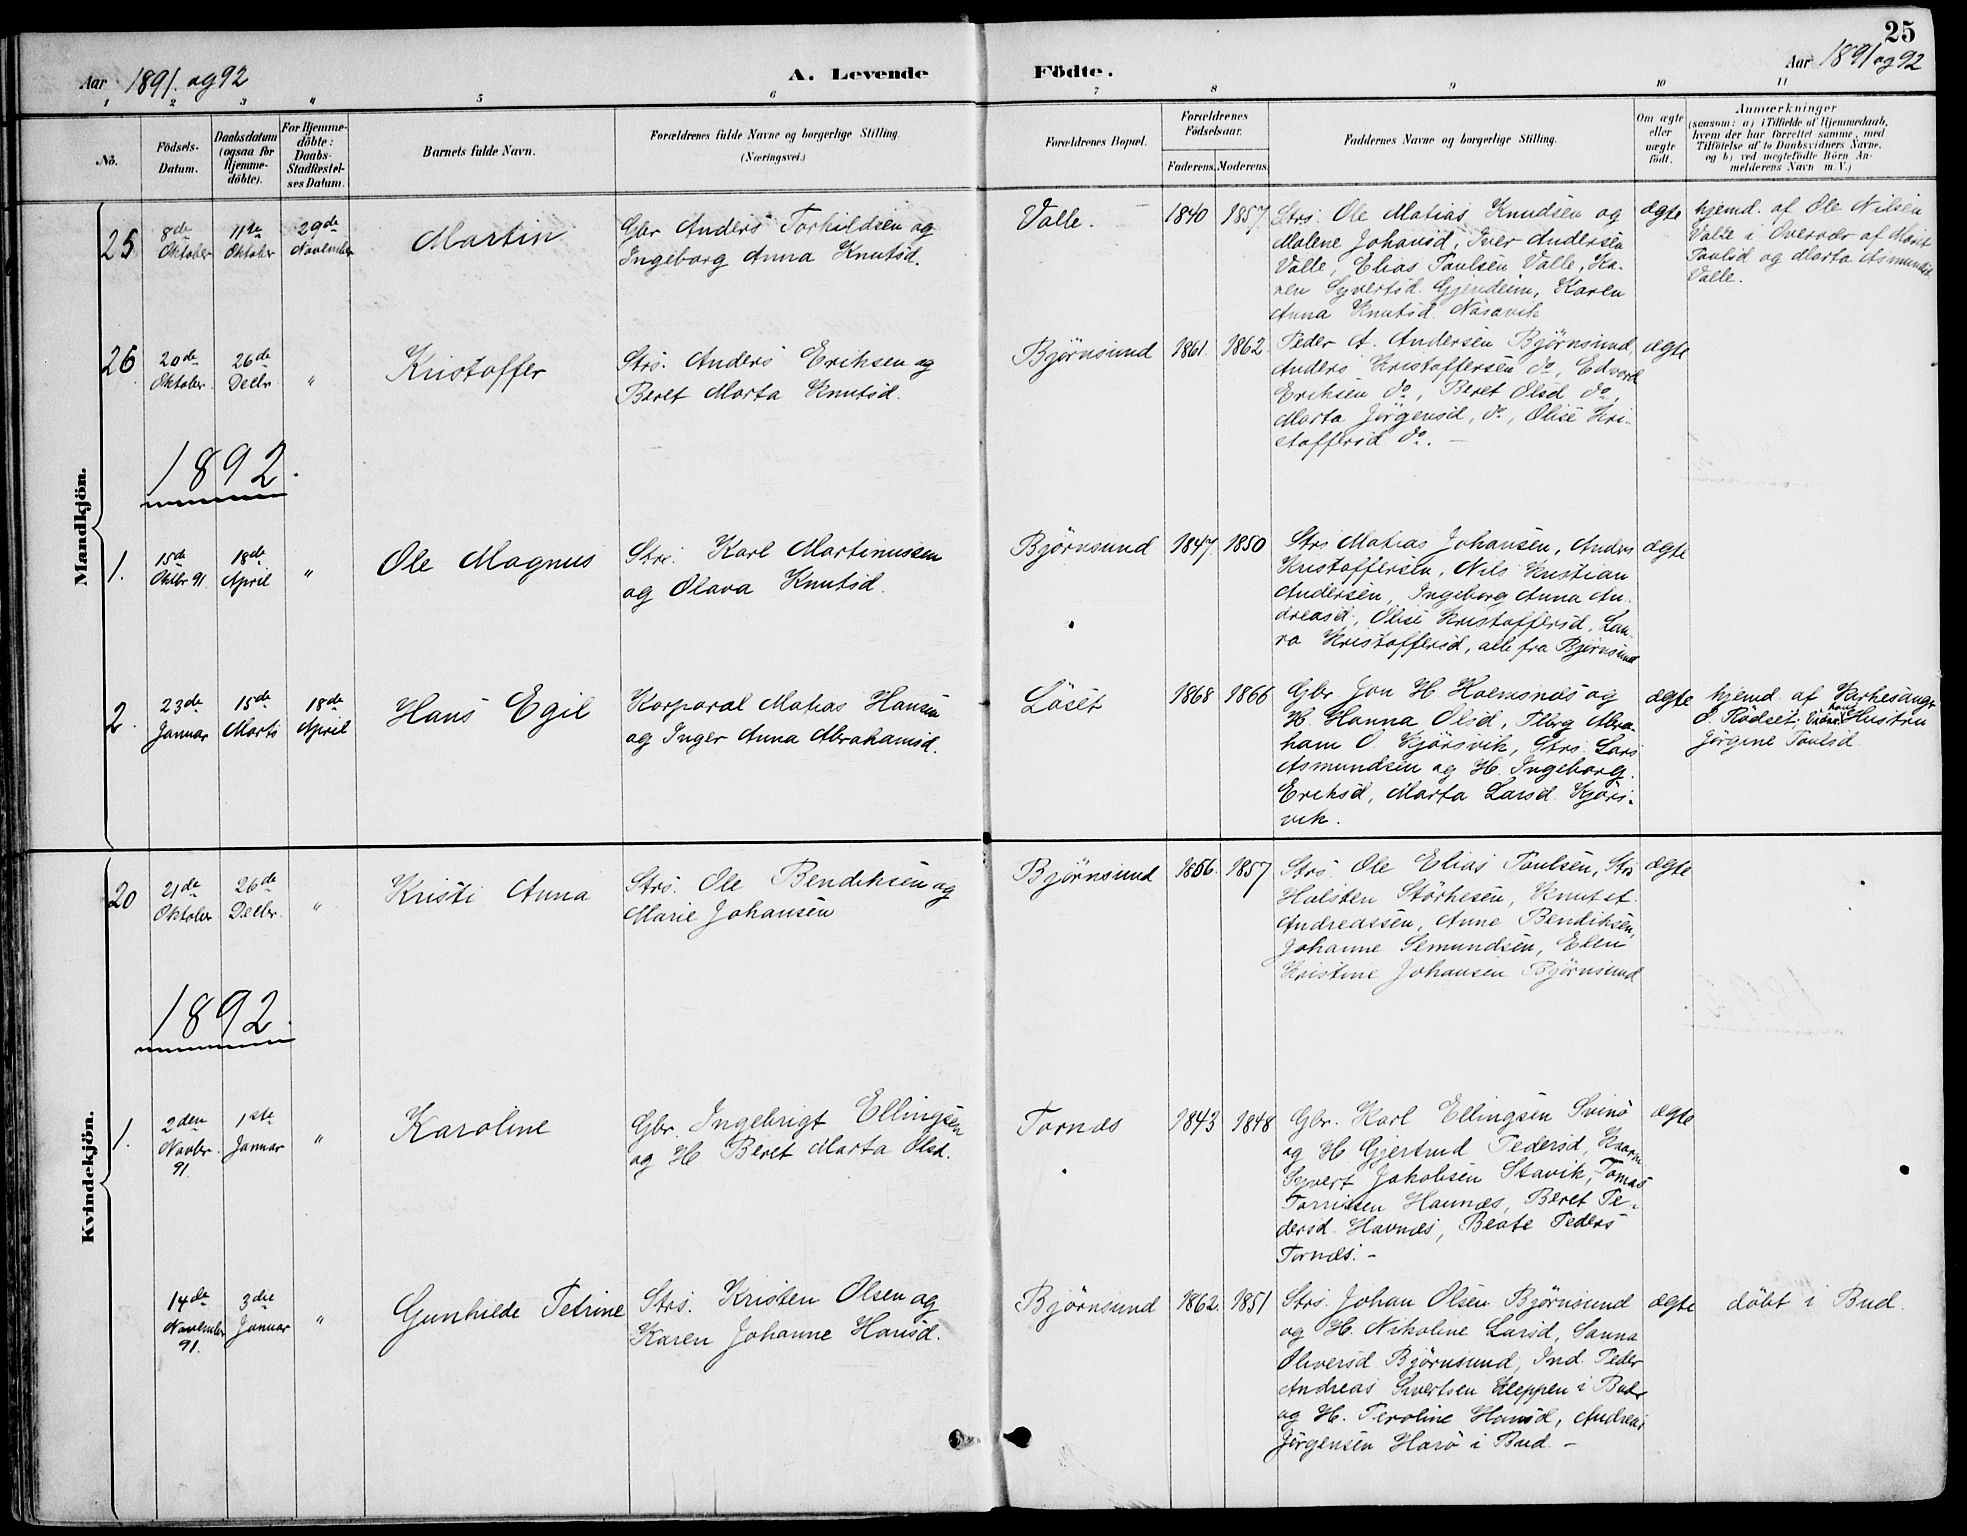 25
Aar 1891. og 92
A. Levende Födte.
Aar 1891 og 92
1 2 3 4 5 6 7 8 9 10 11
No.
Födsels-
Datum.
Daabsdatum
(ogsaa for
Hjemme-
döbte).
For Hjemme-
döbte:
Daabs-
Stadfæstel-
ses Datum.
Barnets fulde Navn.
Forældrenes fulde Navne og borgerlige Stilling.
(Næringsvei.)
Forældrenes Bopæl.
Forældrenes
Födselsaar.
Faderens.
Moderens.
Faddernes Navne og borgerlige Stilling.
Om ægte
eller
uægte
födt.
Anmærkninger
(saasom: a) i Tilfælde af Hjemmedaab,
hvem der har forrettet samme, med
Tilföielse af to Daabsvidners Navne,
og b) ved uægtefödte Börn An-
melderens Navn m. V.)
Mandkjön.
25
8de
Oktober
11te
Oktober
29de
November
Martin
Gbr Anders Torhildsen og
Ingeborg Anna Knutsd.
Valle.
1840
1857
Strs. Ole Matias Knudsen og
Malene Johansd, Iver Andersen
Valle, Elias Paulsen Valle, Ka-
ren Syvertsd. Gjendem, Karen
Anna Knutsd. Näsavik
ægte
hjemd. af Ole Nilsen
Valle i Overvær af Marit
Paulsd og Marta Asmundsd
Valle.
26
20de
Oktober.
26de
Decbr
"
Kristoffer
Strs. Anders Eriksen og
Beret Marta Knutsd.
Bjørnsund
1861.
1862.
Peder A. Andersen Bjørnsund
Anders Kristoffersen do, Edvard
Eriksen do, Beret Olsd do,
Marta Jörgensd, do, Olise Kri-
stoffersd do. –
ægte
1892.
1.
15de
Oktbr 91.
18de
April
"
Ole Magnus
Strs. Karl Martinussen
og Olava Knutsd.
Bjørnsund
1847.
1850
Strs Matias Johansen, Anders
Kristoffersen, Nils Kristian
Andersen, Ingeborg Anna An-
dreasd, Olise Kristoffersd, Lau-
ra Kristoffersd, alle fra Bjørnsund
ægte
2.
23de
Januar
15de
Marts
18de
April
Hans Egil
Korporal Matias Hansen
og Inger Anna Abrahamsd.
Löset
1868
1866
Gbr Jon H. Holmsnæs og
H. Hanna Olsd, Pltg Abra-
ham O. Kjörsvik, Strs. Lars
Asmundsen og H. Ingeborg
Eriksd, Marta Larsd. Kjörs-
vik.
ægte
hjemd. af Kirkesangr
O. Rödset. Vidner: hans Hustru
Jörgine Paulsd
Kvindekjön.
20
21de
Oktober
26de
Decbr.
"
Kristi Anna
Strs. Ole Bendiksen og
Marie Johansen
Bjørnsund
1856.
1857
Strs. Ole Elias Paulsen, Strs
Halsten Störkesen, Knut A.
Andreassen, Anne Bendiksen,
Johanne Semundsen, Ellen
Kristine Johansen Bjørnsund
ægte
1892.
1.
2den
Novbr.
91.
1ste
Januar
"
Karoline
Gbr. Ingebrigt Ellingsen
og H. Beret Marta Olsd.
Tornæs
1843
1848
Gbr. Karl Ellingsen Svinö
og H Gjertrud Pedersd,
Syvert Jakobsen Stavik, Tomas
Havnæs, Beret Pe-
dersd. Havnæs, Beate Peders
Tornæs. –
ægte
14de
November
91.
3die
Januar
"
Gunhilde Petrine
Strs. Kristen Olsen og
Karen Johanne Hansd.
Bjørnsund
1862.
1851
Strs. Johan Olsen Bjørnsund
og H. Nikoline Larsd, Sanna
Oliversd Bjørnsund, Ind. Peder
Andreas Sivertsen Kleppen i Bud
og H. Peroline Hansd, Andreas
Jörgensen Harö i Bud –
ægte
döbt i Bud.